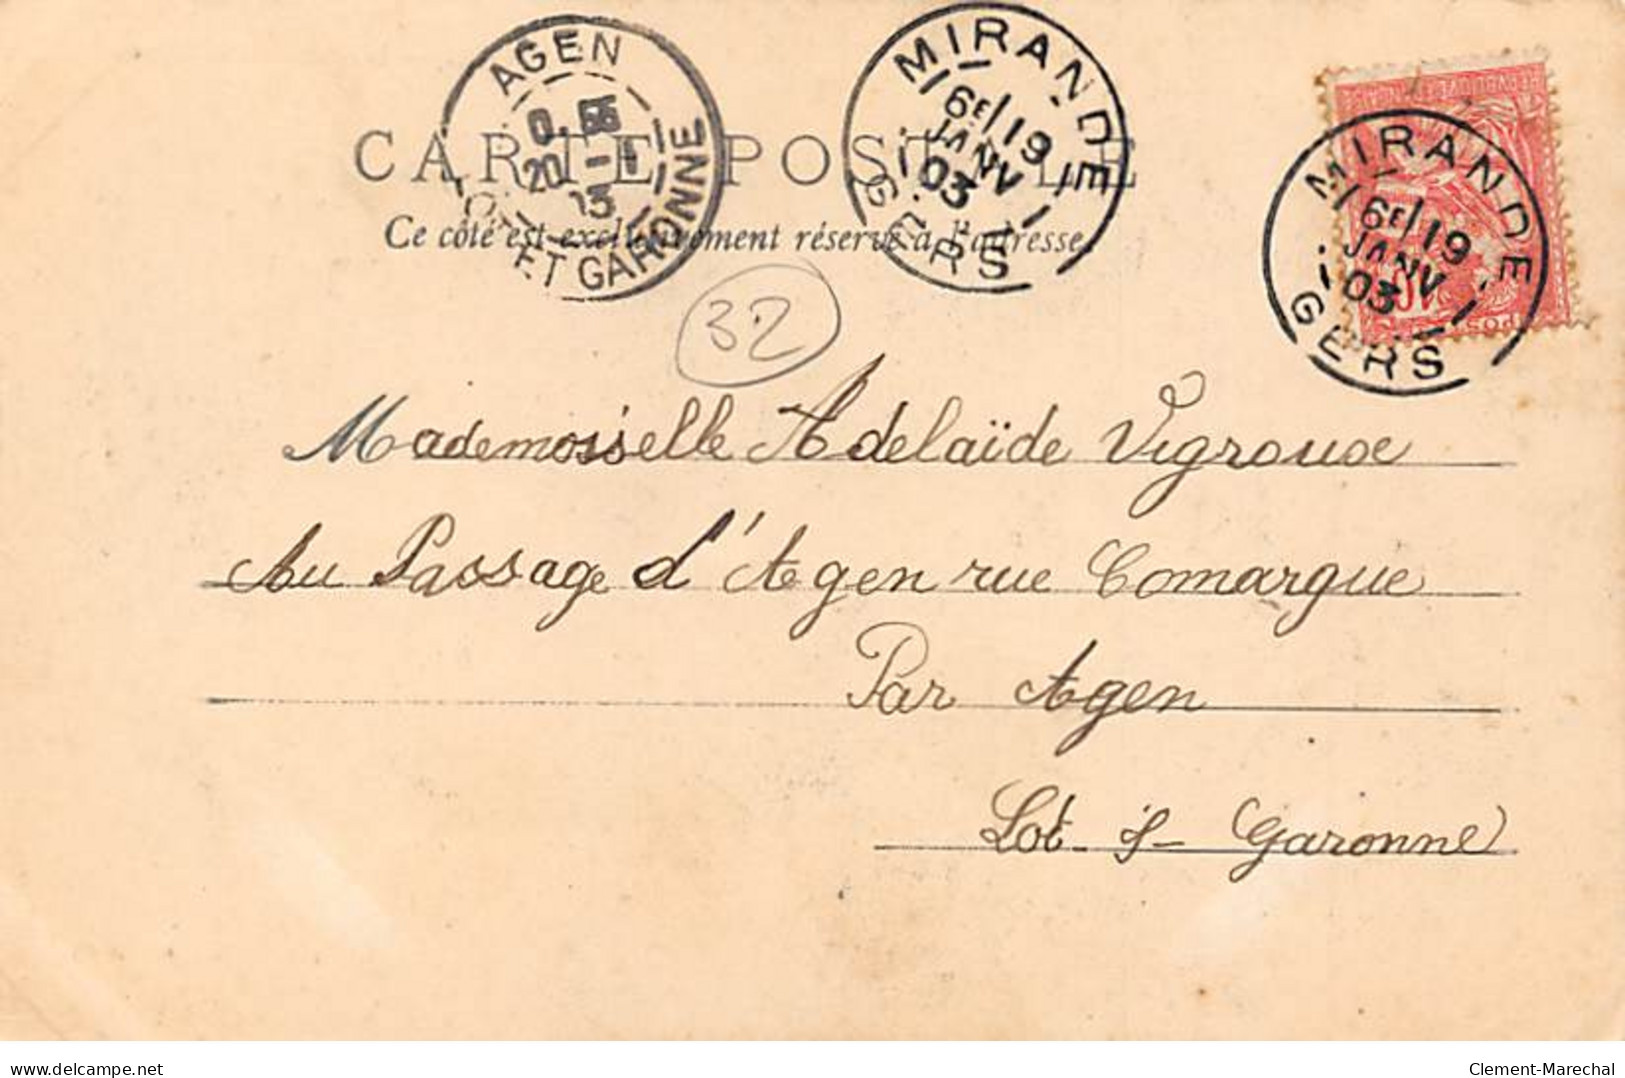 CARTE POSTALE
Ce côté est exclusivement réservé à l'adresse
AGEN
20 -1
03
LOT ET GARONNE
MIRANDE
6E/19
JANV
03
GERS
MIRANDE
6E/19
JANV
03
GERS
32
Mademoiselle Adelaïde Vigroux
Au Passage d'Agen rue Comargue
Par Agen
Lot-&-Garonne
delcampe.net
Clement-Marechal